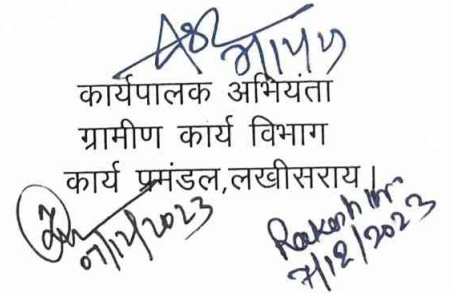 कार्यपालक अभियंता
ग्रामीण कार्य विभाग
कार्य प्रमंडल,लखीसराय।
07/12/2023
Rakesh Kr
7/12/2023